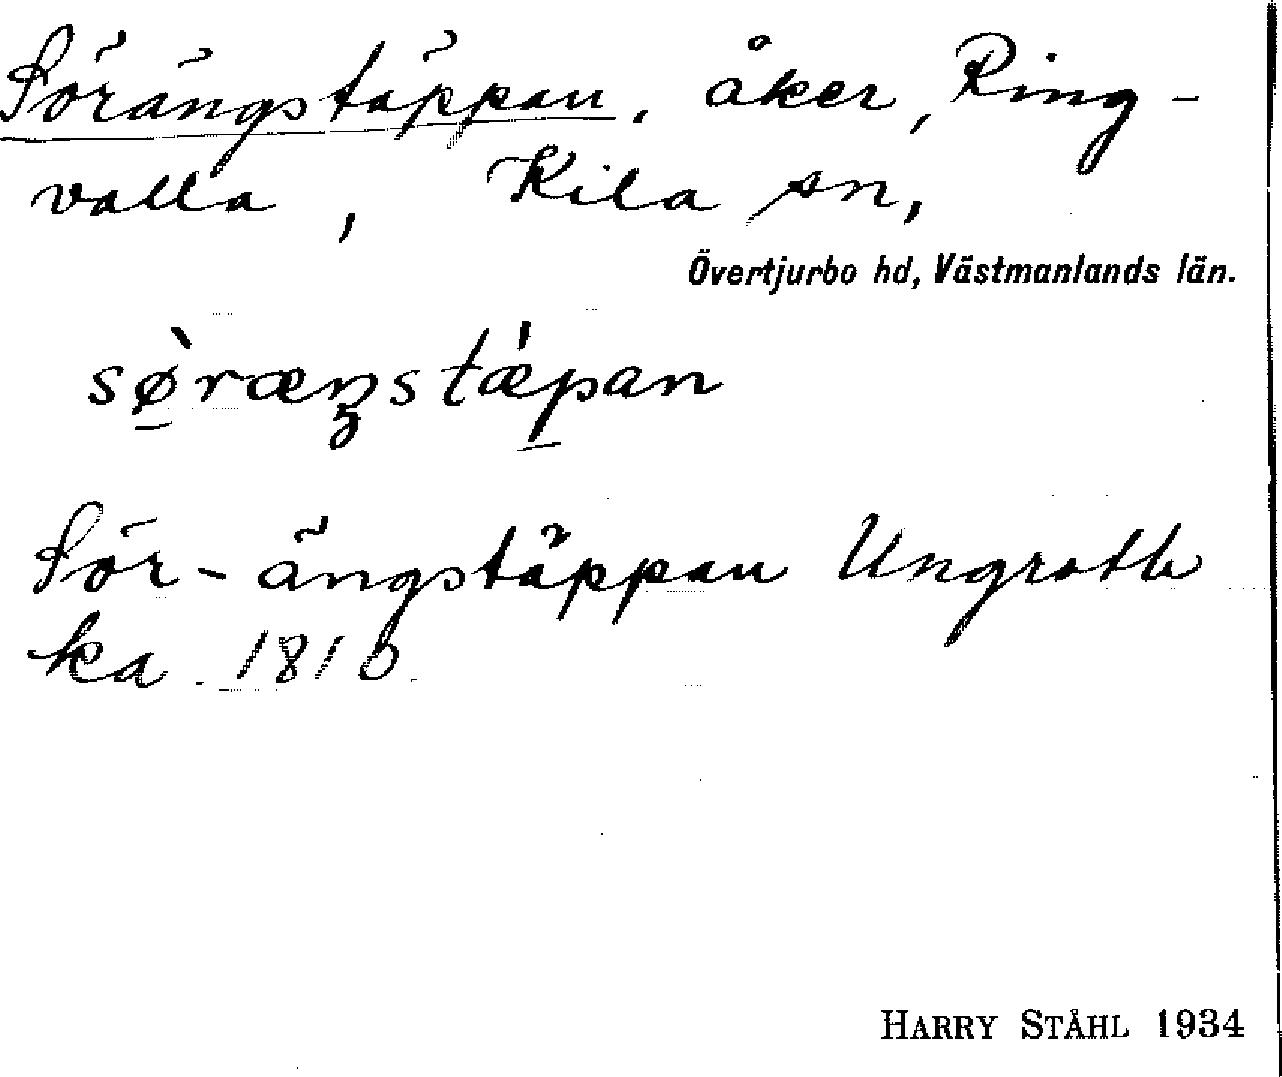 Sörängstäppan, åker, Ring-
valla, Kila sn,
Övertjurbo hd, Västmanlands län.
sø̠̀ræŋstæ̀p̠an
Sör-ängstäppan Ungroth
ka 1810
HARRY STÅHL 1934